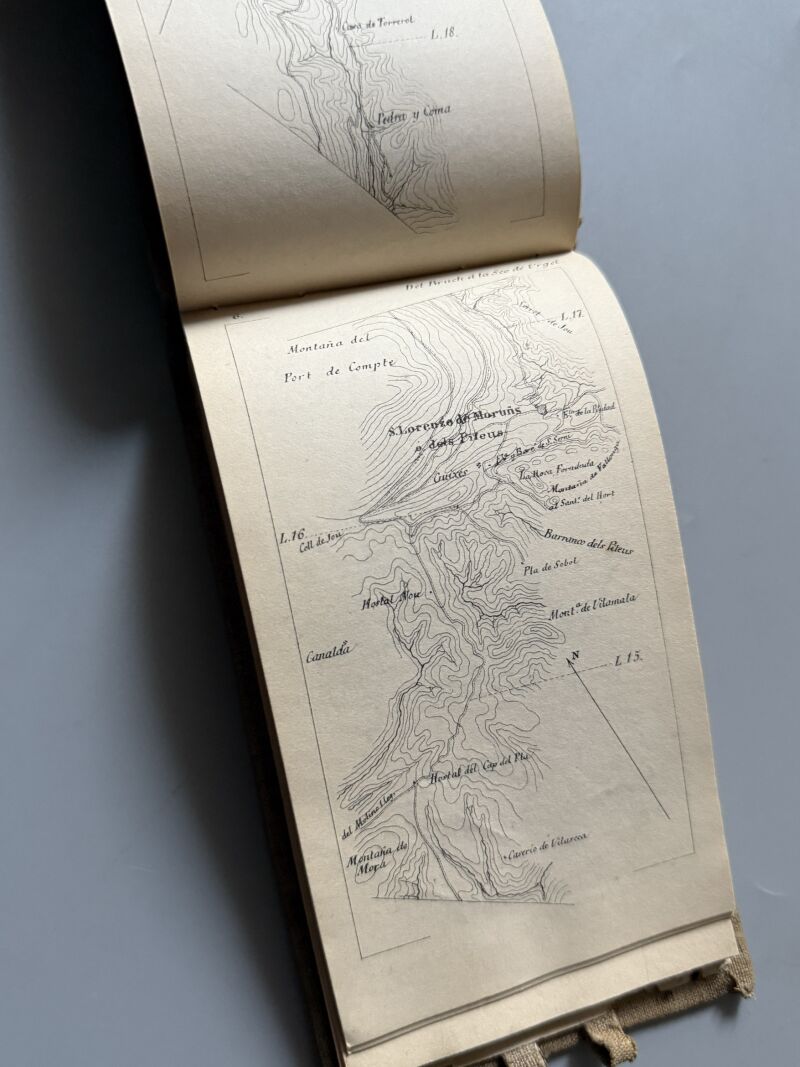 Casa de Torrerol
L.18.
Pedra y Coma
6.
Del Bruch á la Seo de Urgel
Serrat de Jou
L.17.
Montaña del
Port de Compte
S. Lorenzo de Moruñs
o dels Piteus
de la Piedad
Guixes
La Roca Foradada
Montaña de Vallonga
al Sant.º del Hort
L.16.
Coll de Jou
Barranco dels Piteus
Pla de Sobol
Hostal Nou
Mont.ª de Vilamala
Canalda
N
L 15.
Hostal del Cap del Pla
del Molino
Montaña de
Mora
Caserio de Vilareca